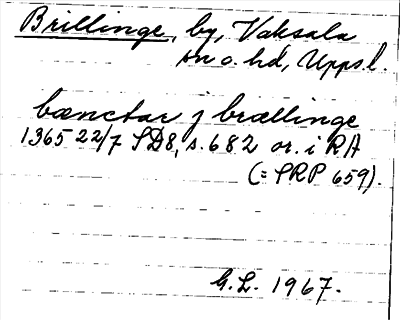 Brillinge, by, Vaksala
sn o. hd, Uppsl.
bænctar j brællinge
1365 22/7 SD8, s. 682 or. i RA
(= SRP 659).
G. L. 1967.